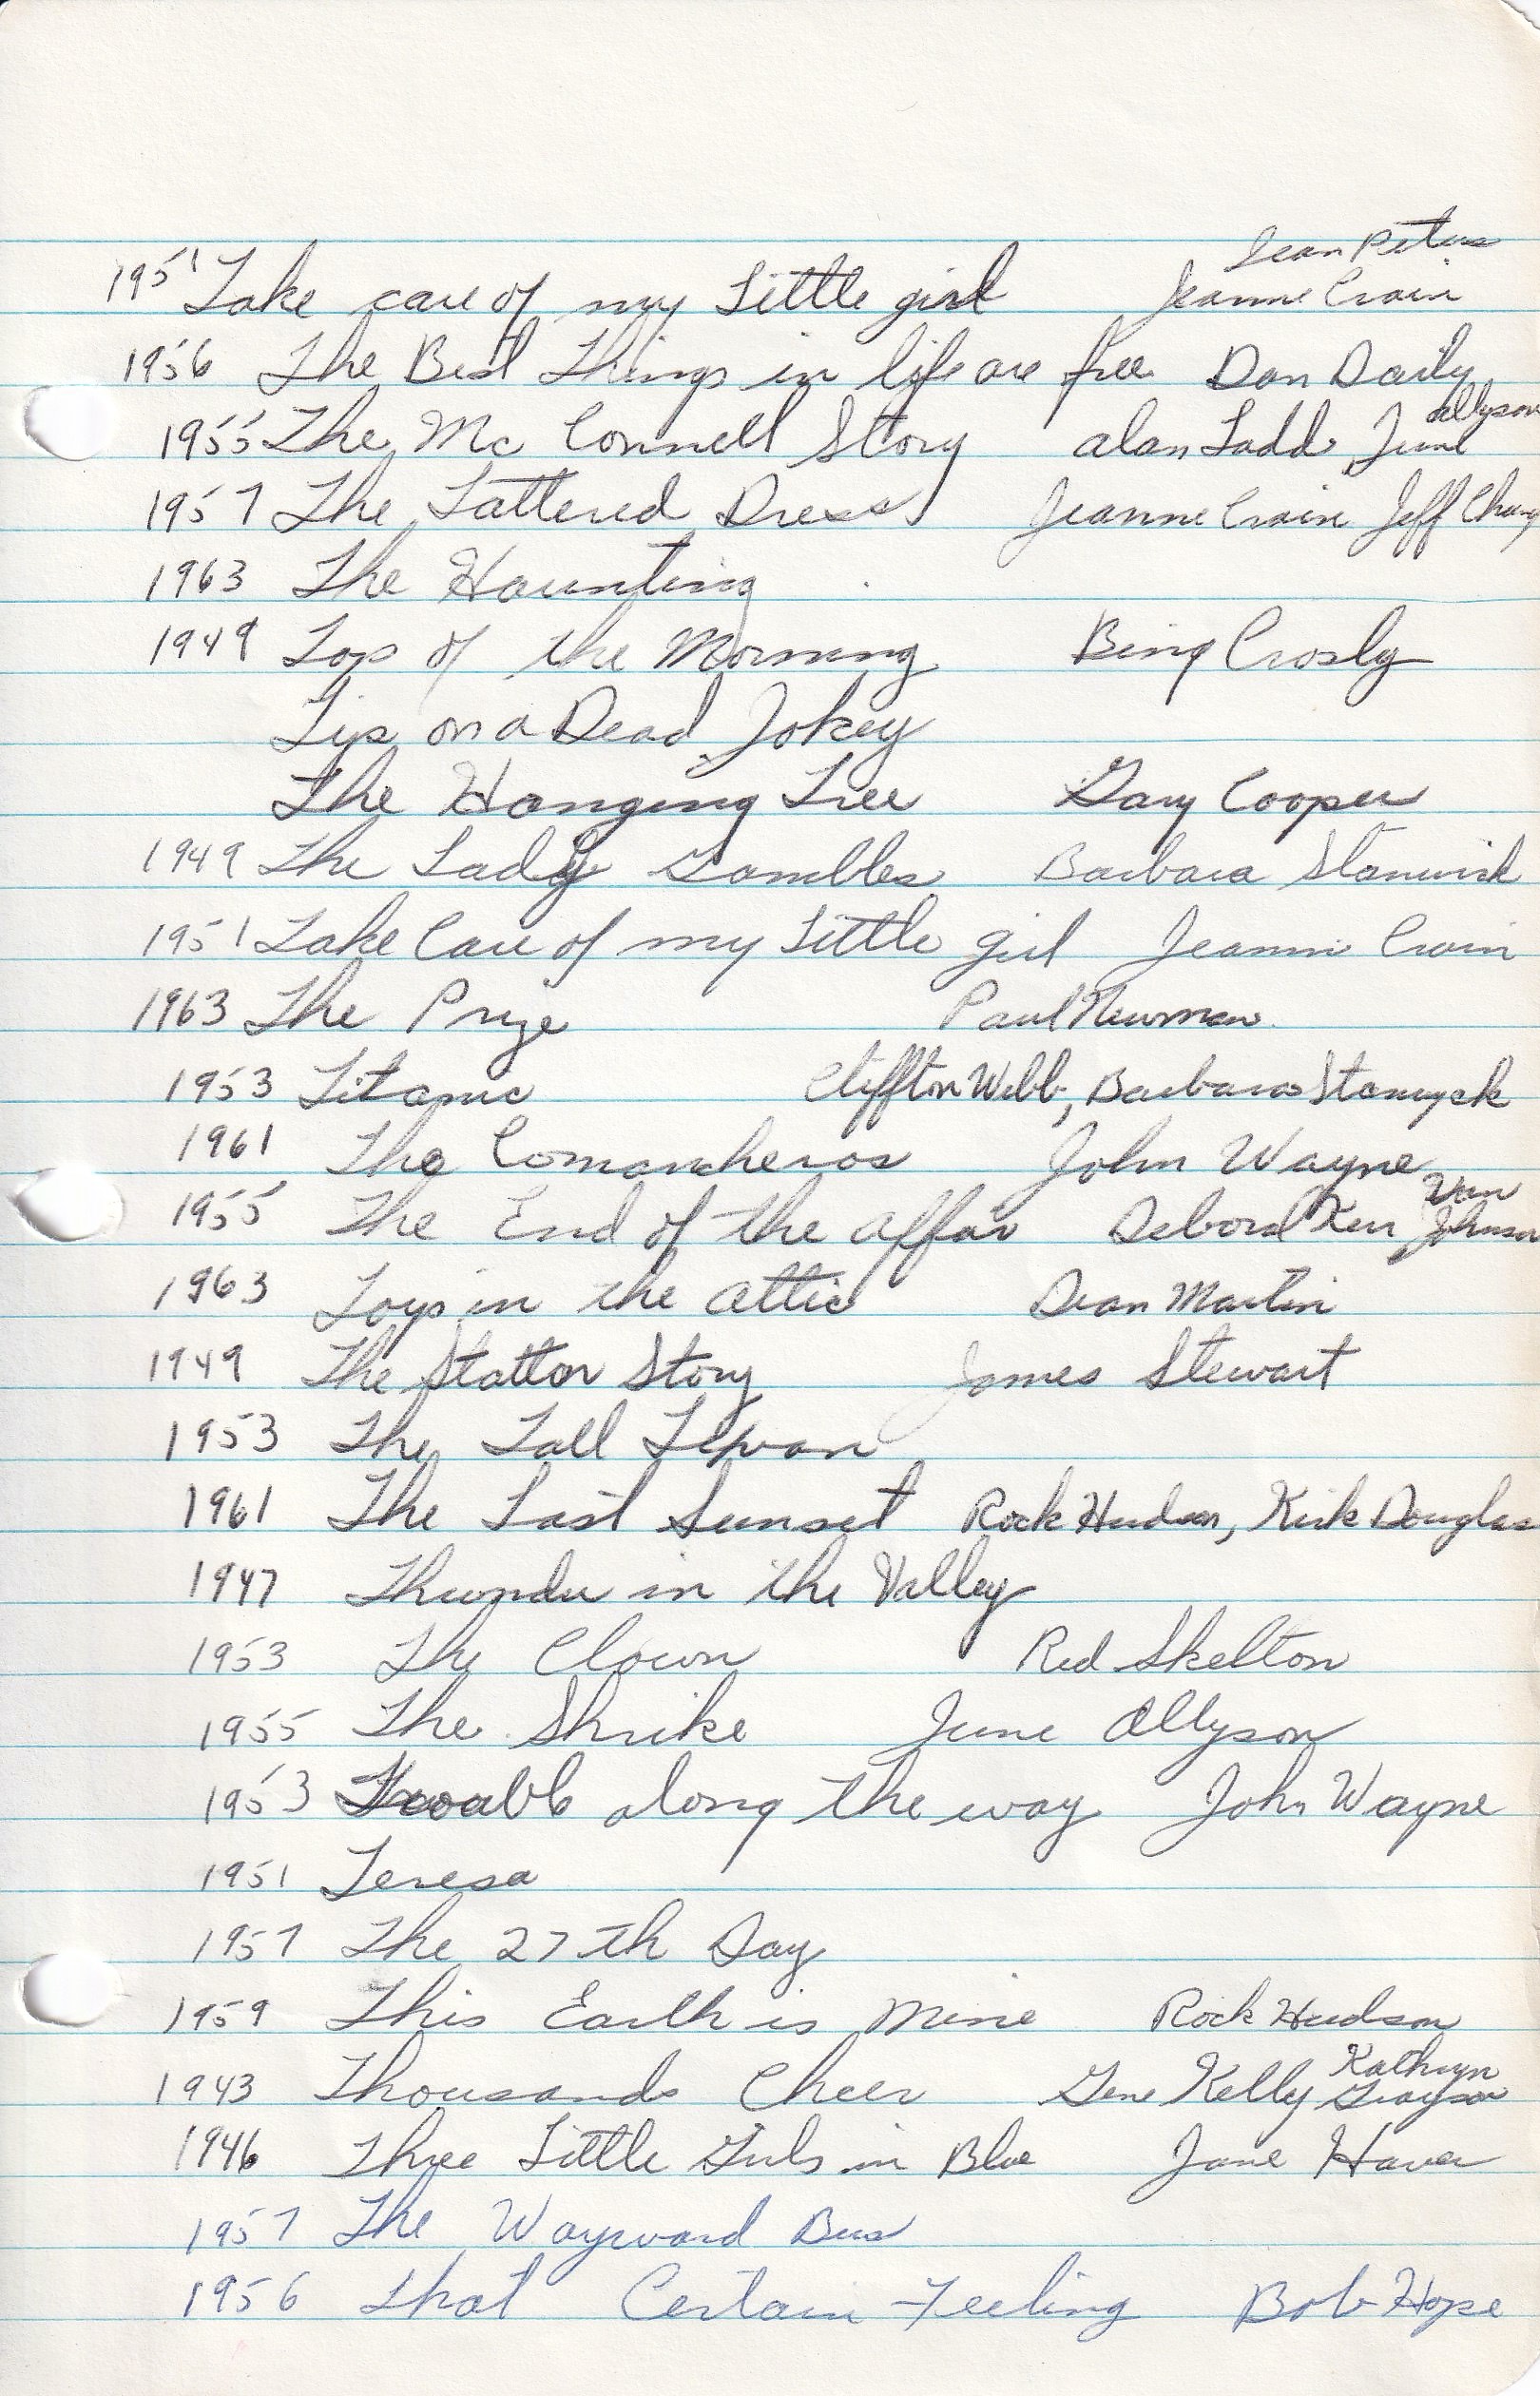 Jean Peters
1951 Take care of my Little girl Jeanne Crain
1956 The Best Things in life are free Dan Daily
1955 The Mc Connell Story Alan Ladd, June Allyson
1957 The Tattered Dress Jeanne Crain Jeff Chang
1963 The Haunting
1949 Top of the Morning Bing Crosby
Tip on a Dead Jokey
The Hanging Tree Gary Cooper
1949 The Lady Gambles Barbara Stanwick
1951 Take Care of my Little girl Jeanne Crain
1963 The Prize Paul Newman
1953 Titanic Cliffton Webb, Barbara Stanwyck
1961 The Comancheros John Wayne
1955 The End of the affair Debora Kerr Van Johnson
1963 Toys in the attic Dean Martin
1949 The Statton Story James Stewart
1953 The Tall Texan
1961 The Last Sunset Rock Hudson, Kirk Douglas
1947 Thunder in the Valley
1953 The Clown Red Skelton
1955 The Shrike June Allyson
1953 along the way John Wayne
1951 Teresa
1957 The 27th Day
1959 This Earth is Mine Rock Hudson
1943 Thousands Cheer Gene Kelly Kathryn Grayson
1946 Three Little Girls in Blue Jane Haver
1957 The Wayward Bus
1956 That Certain Feeling Bob Hope